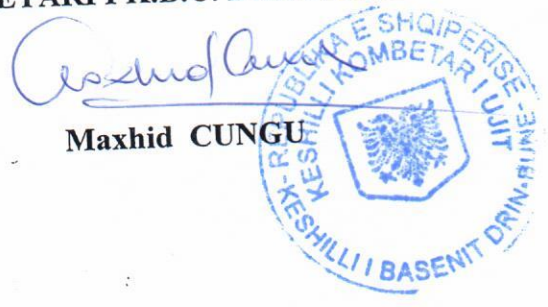 Maxhid CUNGU
REPUBLIKA E SHQIPERISE
KESHILLI KOMBETAR I UJIT
KESHILLI I BASENIT DRIN-BUNE